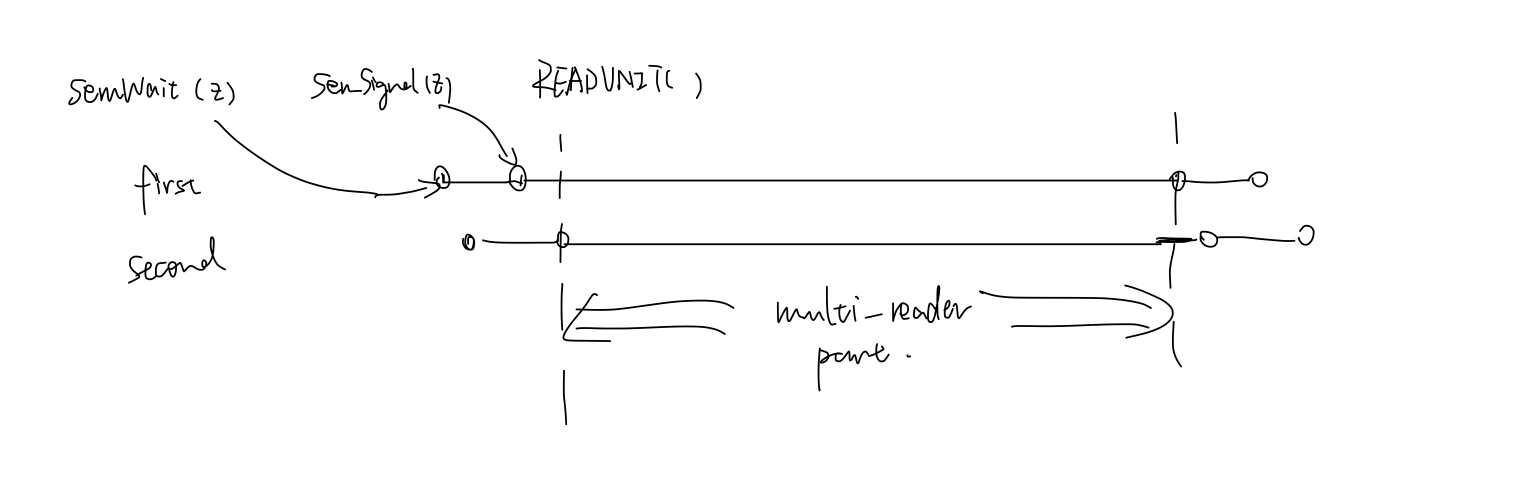 SemWait (z) SemSignal(z) READUNIT( )
first
second
multi-reader
part.